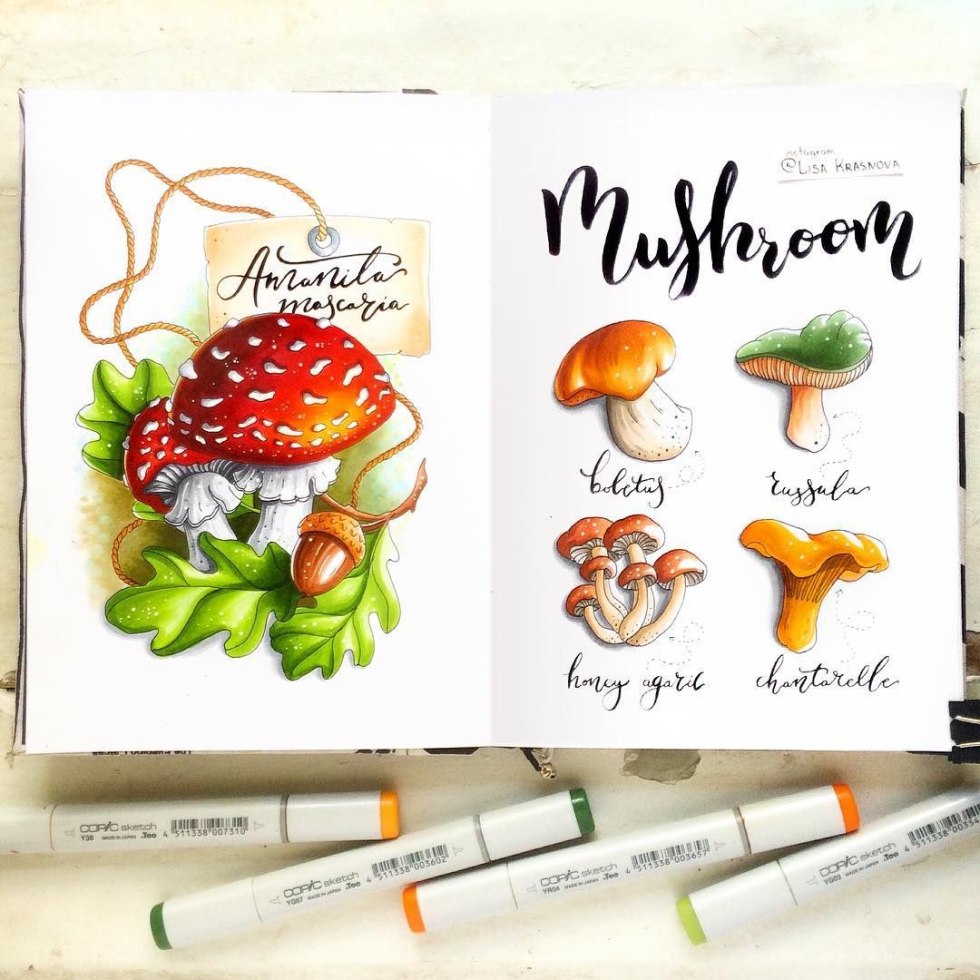 Amanita
mascaria
instagram
@Lisa Krasnova
Mushroom
boletus
russula
honey agaric
chantarelle
COPIC sketch
Y38 MADE IN JAPAN .Too
4 511338 007310
COPIC sketch
YG67 MADE IN JAPAN .Too
4 511338 003602
COPIC sketch
YR04 MADE IN JAPAN .Too
4 511338 003657
COPIC sketch
YG03 MADE IN JAPAN .Too